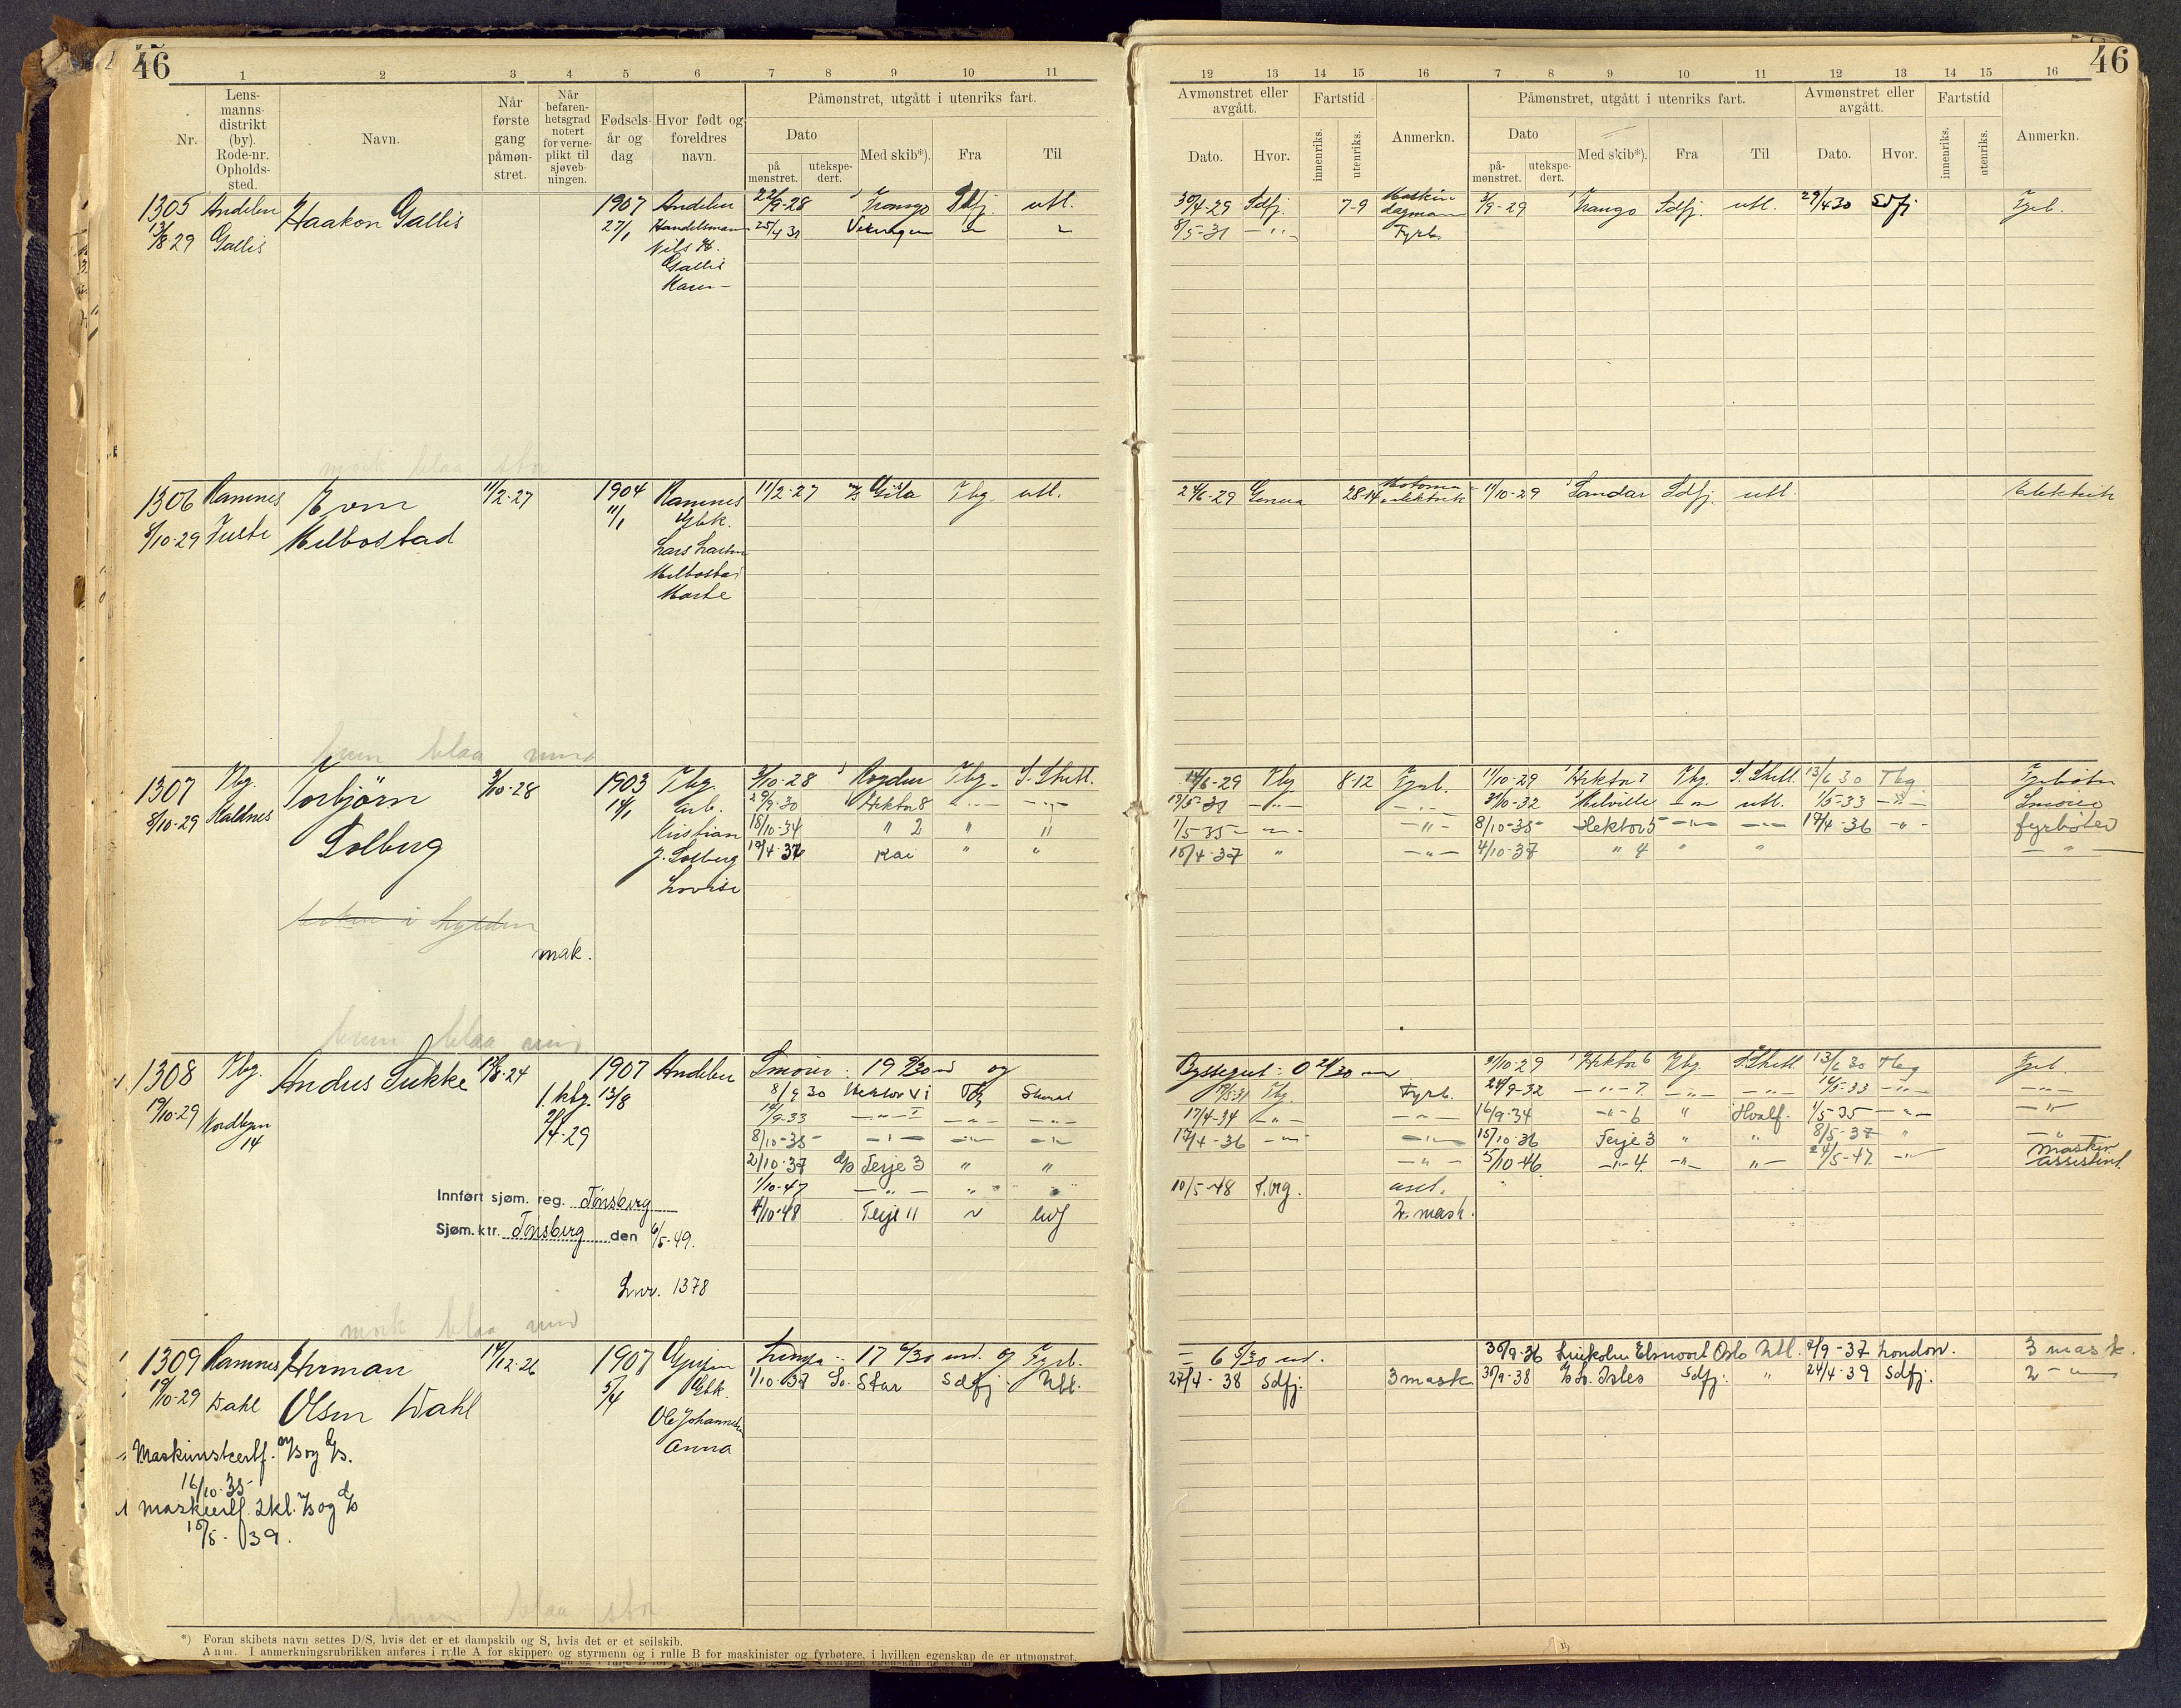 46
1 2 3 4 5 6 7 8 9 10 11
Nr. Lens-manns-distrikt (by). Rode-nr. Opholds-sted. Navn. Når første gang påmøn-stret. Når befaren-hetsgrad notert for verne-plikt til sjøveb-ningen. Fødsels-år og dag. Hvor født og foreldres navn.
Påmønstret, utgått i utenriks fart.
Dato Med skib*). Fra Til
på mønstret. utekspe-dert.
1305 Andebu Haakon Gallis 1907 Andebu 22/9-28 Sdfj. utl.
13/8 29 Gallis 27/1 Handelsmann 25/4 31
Nils
Gallis
Karen –
mørk blaa stor
1306 Ramnes 11/2-27 1904 Ramnes 11/2-27 M/S Gila Tbg. utl.
8/10-29 Melbostad 11/1 Gbk.
Lars Larsen
Melbostad
Marte
brun blaa mid
1307 Tbg. Torbjörn 3/10-28 1903 Tbg. 3/10-28 Tbg. S. Shetl.
8/10-29 Kaldnes Solberg 14/1 arb. 29/9-30 Hektor 8 –„– –„–
Kristian 18/10-34 " 2 " "
J. Solberg 19/4-37 Kai " "
Lovise
mak.
brun blaa mid
1308 Tbg. Andus Sukke 17/8-24 1907 Andebu Smører: 19 og
19/10-29 Nordbyen 14 1. kbg. 13/8 8/9 30 Hektor VI Tbg
2/4-29 14/9-33 –„– I –„– –„–
8/10-35 –„– –„– –„–
2/10-37 d/s Terje 3 " "
1/10-47 –„– " "
Innført sjøm. reg. Tønsberg 4/10-48 Terje 11
Sjøm.ktr. Tønsberg den 6/5-49.
Lnr. 1378
mørk blaa mid
1309 Ramnes Herman 14/12-26 1907 Lemper: 17 6/30 md. og Fyrb.
19/10-29 Dahl Olsen Dahl 5/4 Gbk. 1/10-37 Star Sdfj. Utl.
Ole Johannesen
Anna
Maskinistcertf. M/S og D/S.
16/10-35
2kl. M/S og D/S
15/5-39.
brun blaa stor
*) Foran skibets navn settes D/S, hvis det er et dampskib og S, hvis det er et seilskib.
Anm. I anmerkningsrubrikken anføres i rulle A for skippere og styrmenn og i rulle B for maskinister og fyrbøtere, i hvilken egenskap de er utmønstret.
46
12 13 14 15 16 7 8 9 10 11 12 13 14 15 16
Avmønstret eller avgått. Fartstid Anmerkn. Påmønstret, utgått i utenriks fart. Avmønstret eller avgått. Fartstid Anmerkn.
Dato. Hvor. innenriks. utenriks. Dato Med skib*). Fra Til Dato. Hvor. innenriks. utenriks.
på-mønstret. utekspe-dert.
30/4-29 Sdfj. 7-9 3/9-29 Sdfj. utl. 29/4 30 Sdfj Fyrb.
8/5-31 –„– Fyrb.
24/6-29 Genua 28-14 11/10-29 Sandar Sdfj. utl. Elektrik
14/6-29 Tbg 8-12 Fyrb. 11/10-29 Hektor 7 Tbg. S. Shetl 13/6 30 Tbg Fyrbøter
13/5-31 –„– –„– 31/10-32 Melville –„– utl. 1/5-33 –„– Smører
1/5-35 –„– –„– 8/10-35 Hektor 5 –„– –„– 17/4-36 –„– fyrbøter
15/4-37 " –„– 4/10-37 " 4 " " –„–
Byssegut: 0 21/30 md 31/10-29 Hektor 6 Tbg. S. Shetl 13/6 30 Tbg Fyrb.
Tbg. Fyrb. 24/9-32 –„– 7. –„– –„– 16/5-33 –„– –„–
17/4-34 –„– –„– 16/9-34 –„– 6 " Hvalf. 1/5-35 –„– –„–
17/4-36 –„– –„– 15/10-36 Terje 3 " " 8/5-37 " –„–
–„– 5/10-46 –„– 4. –„– „– 24/5-47 –„– maskin assistent.
10/5-48 T.brg. asst.
2. mask.
= 6 5/30 md. 30/9-36 Oslo Utl. 2/9-37 London. 3 mask.
27/4-38 Sdfj. 3 mask 30/9-38 Sdfj. " 24/4-39 Sdfj. 2 –„–